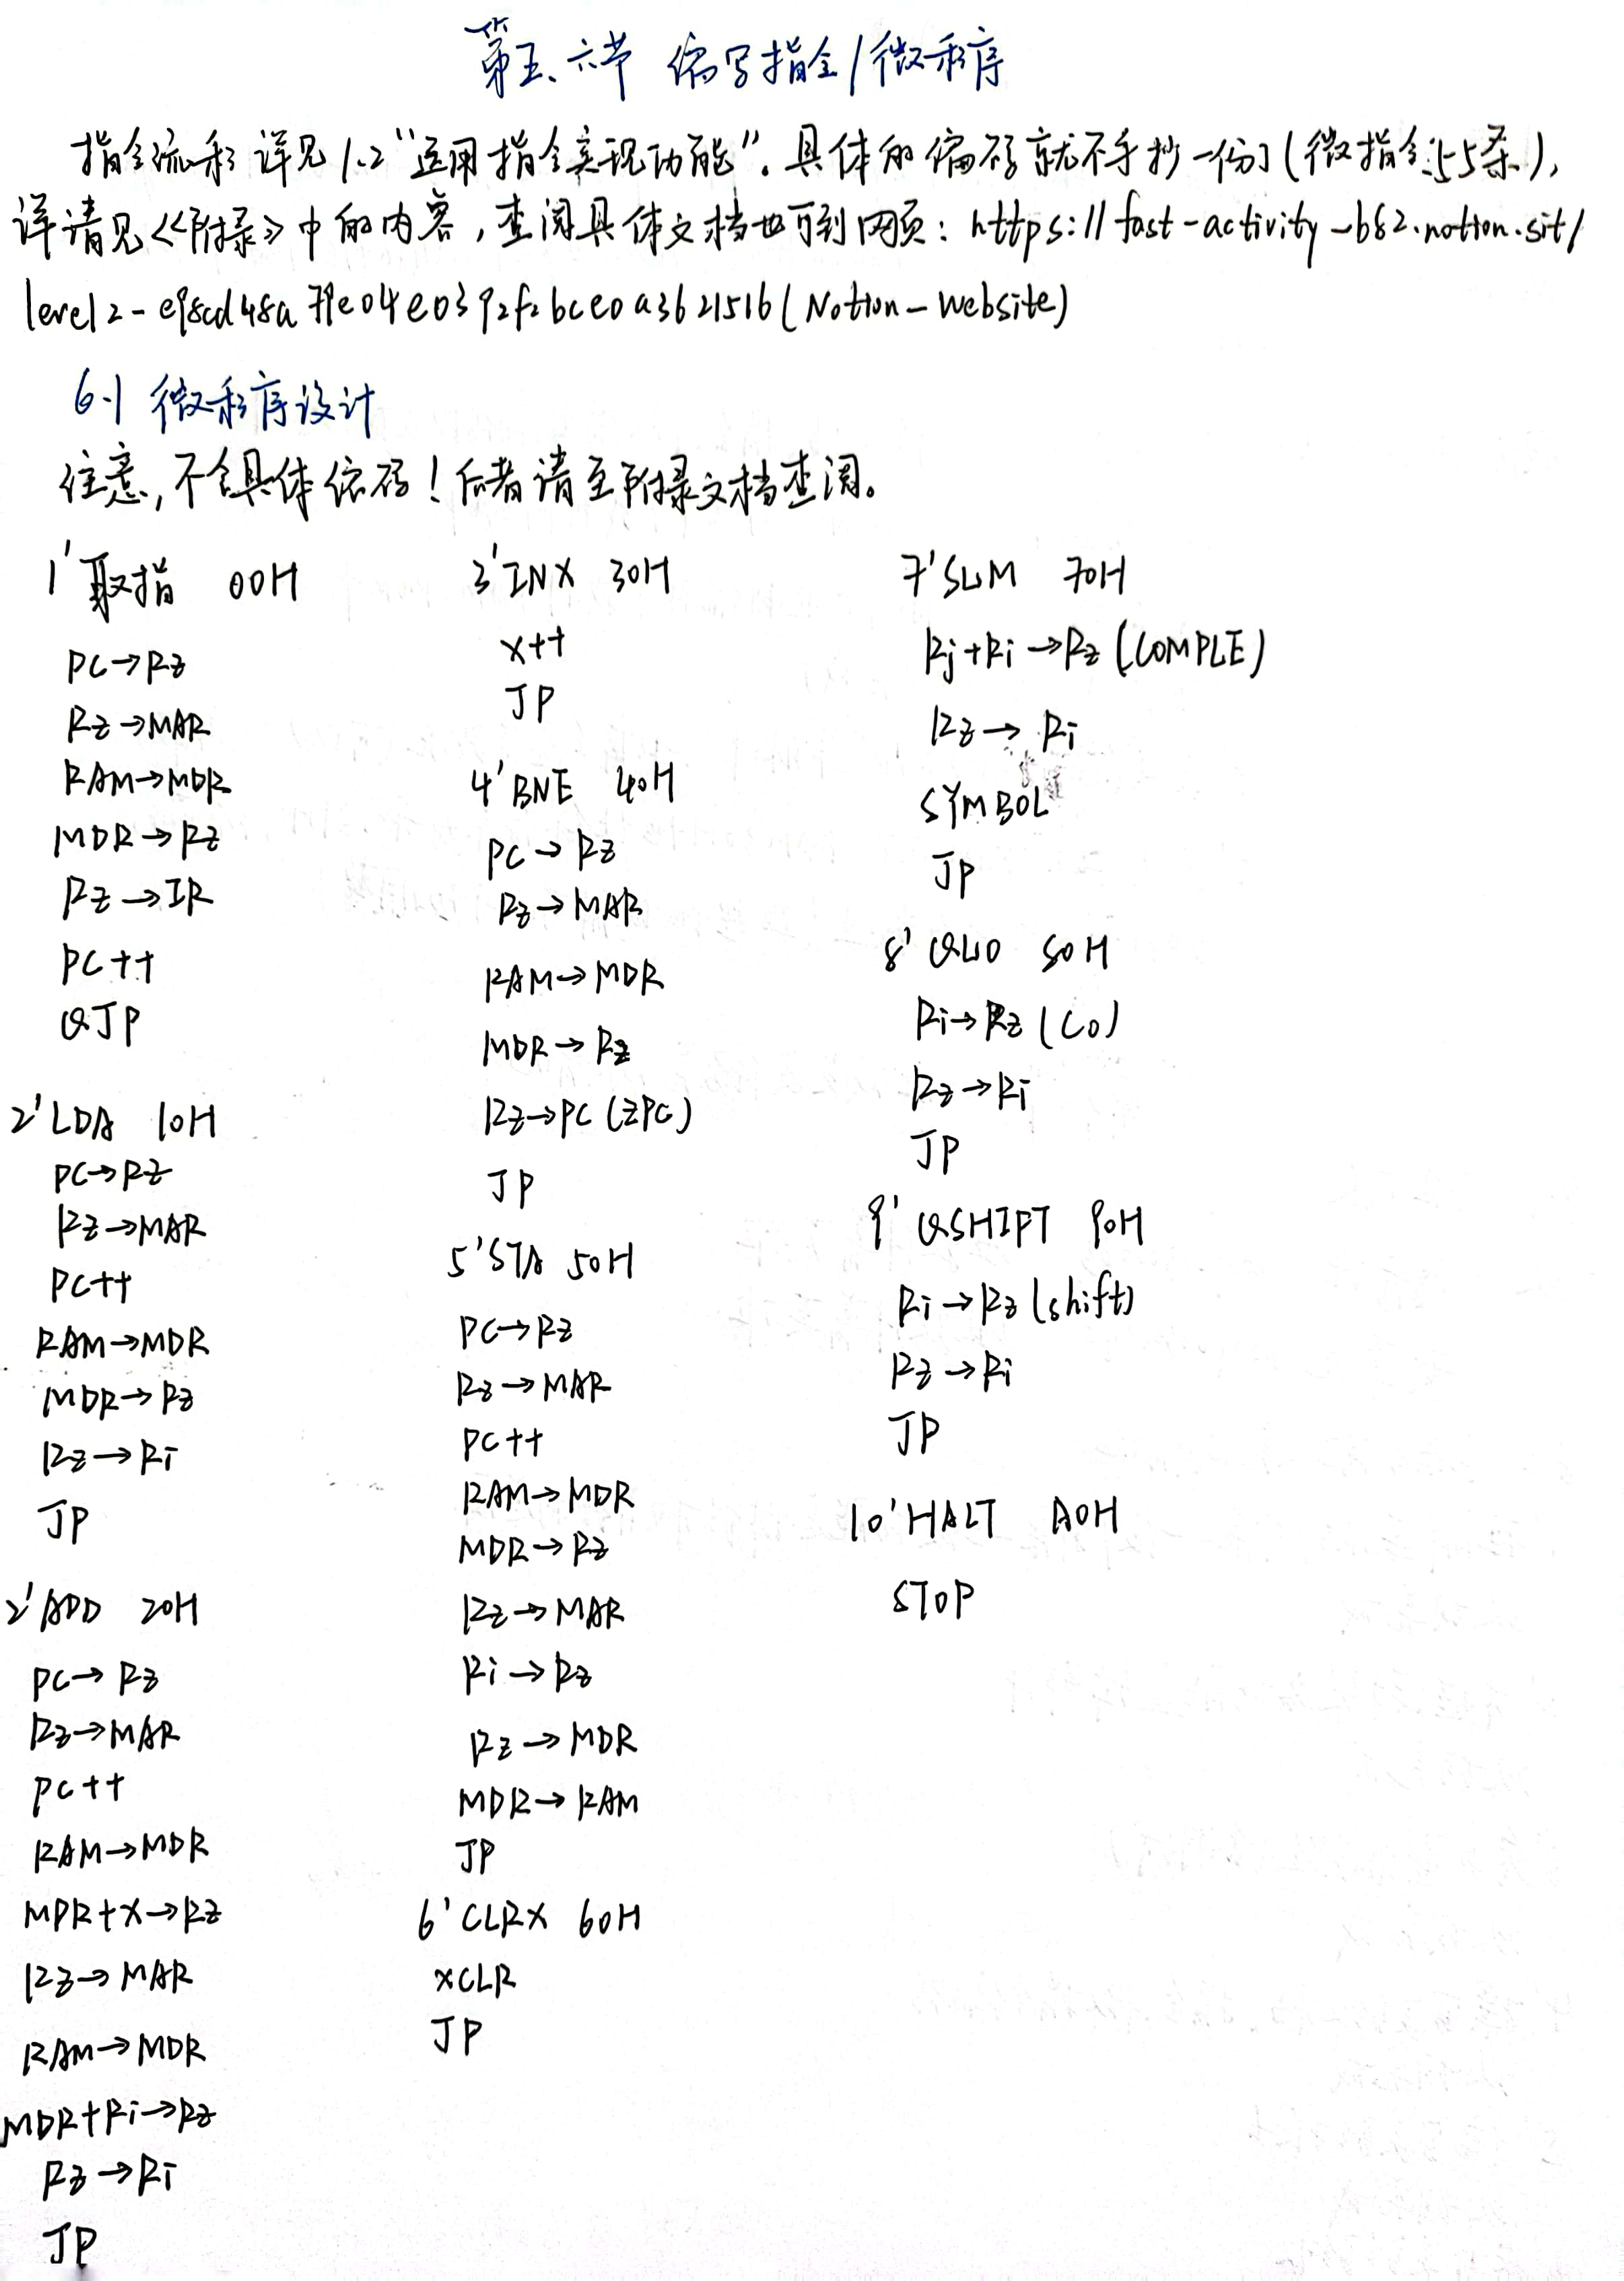 第五、六节 编写指令/微程序
指令流程详见1.2“运用指令实现功能”。具体的编码就不手抄一份了(微指令55条),
详请见《附录》中的内容,查阅具体文档也可到网页: https://fast-activity-b82.notion.sit/
level2-e98cd48a79e04e0392f2bce0a3621516(Notion-website)
6.1 微程序设计
注意,不含具体编码!后者请至附录文档查阅。
1' 取指 00H
PC→Rz
Rz→MAR
RAM→MDR
MDR→Rz
Rz→IR
PC++
QJP
2' LDA 10H
PC→Rz
Rz→MAR
PC++
RAM→MDR
MDR→Rz
Rz→Ri
JP
2' ADD 20H
PC→Rz
Rz→MAR
PC++
RAM→MDR
MDR+X→Rz
Rz→MAR
RAM→MDR
MDR+Ri→Rz
Rz→Ri
JP
3' INX 30H
X++
JP
4' BNE 40H
PC→Rz
Rz→MAR
RAM→MDR
MDR→Rz
Rz→PC (ZPC)
JP
5' STA 50H
PC→Rz
Rz→MAR
PC++
RAM→MDR
MDR→Rz
Rz→MAR
Ri→Rz
Rz→MDR
MDR→RAM
JP
6' CLRX 60H
XCLR
JP
7' SUM 70H
Rj+Ri→Rz (COMPLE)
Rz→Ri
SYMBOL
JP
8' QUO 80H
Ri→Rz (C0)
Rz→Ri
JP
9' QSHIFT 90H
Ri→Rz (shift)
Rz→Ri
JP
10' HALT A0H
STOP